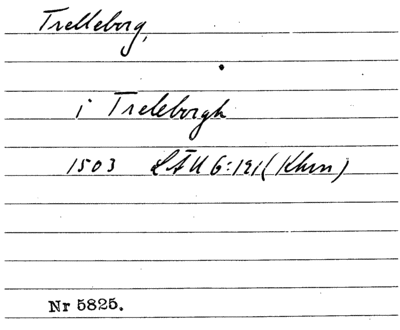 Trelleborg,
i Treleborgh
1503 LÄU 6:191 (Khvn)
Nr 5825.